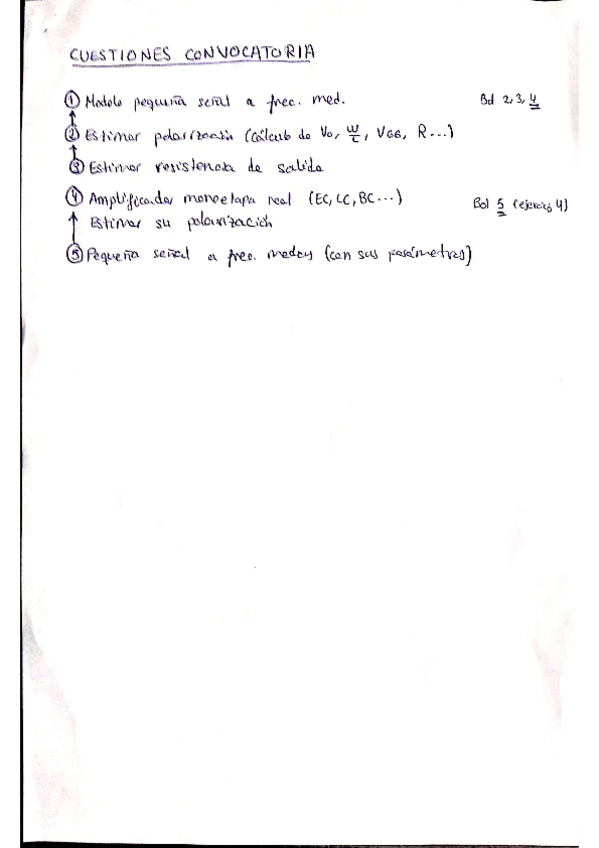 CUESTIONES CONVOCATORIA
① Modelo pequeña señal a frec. med. Bol 2, 3, 4
② Estimar polarización (Cálculo de Vo, W/L, VGG, R...)
③ Estimar resistencia de salida
④ Amplificador monoetapa real (EC, CC, BC...) Bol 5 (ejercicio 4)
Estimar su polarización
⑤ Pequeña señal a frec. medias (con sus parámetros)